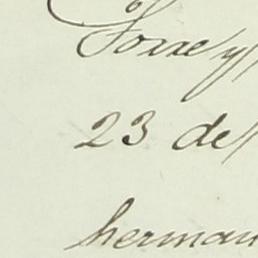 Torre y
23 de
herman